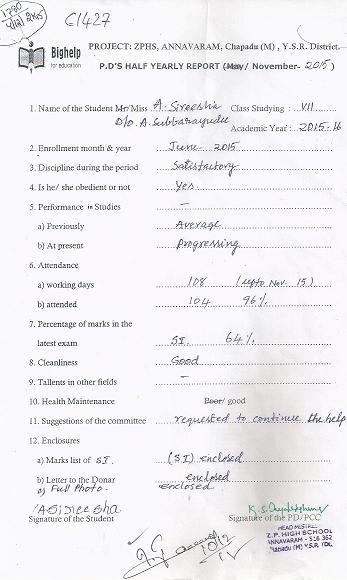 C1427
Bighelp
for education
PROJECT: ZPHS, ANNAVARAM, Chapadu (M) , Y.S.R. District.
P.D'S HALF YEARLY REPORT (May/ November- 2015)
1. Name of the Student Mr/Miss A. Sireesha Class Studying : VII
D/o A. Subbarayudu Academic Year : 2015-16
2. Enrollment month & year June 2015
3. Discipline during the period Satisfactory
4. Is he/ she obedient or not Yes
5. Performance in Studies –
a) Previously Average
b) At present Progressing
6. Attendance
a) working days 108 (upto Nov 15)
b) attended 104 96%
7. Percentage of marks in the
latest exam SI. 64%
8. Cleanliness Good
9. Tallents in other fields –
10. Health Maintenance Poor/ good
11. Suggestions of the committee requested to continue the help
12. Enclosures
a) Marks list of SI. (SI) enclosed
b) Letter to the Donar enclosed
c) Full Photo. enclosed
A Sireesha
Signature of the Student Signature of the PD/PCC
HEAD MISTRESS
Z.P. HIGH SCHOOL
ANNAVARAM - 516 362
Chapadu (M) Y.S.R. (Dt.